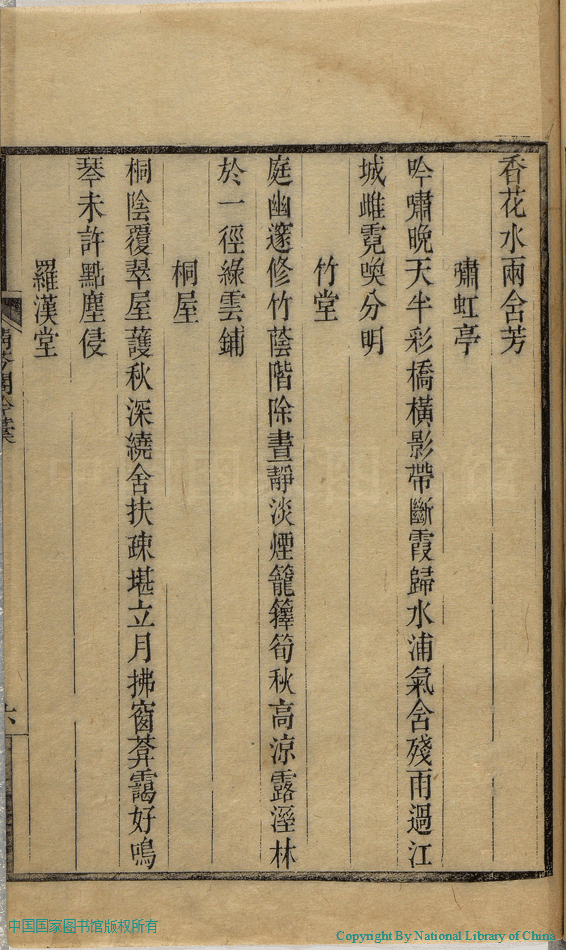 香花水兩含芳
嘯虹亭
吟嘯晚天半彩橋橫影帶斷霞歸水浦氣含殘雨過江
城雌霓喚分明
竹堂
庭幽邃修竹蔭階除晝靜淡煙籠籜筍秋高涼露溼林
於一徑綠雲鋪
桐屋
桐陰覆翠屋護秋深繞舍扶疎堪立月拂窗葊靄好鳴
琴未許點塵侵
羅漢堂
六
中国国家图书馆版权所有
Copyright By National Library of China